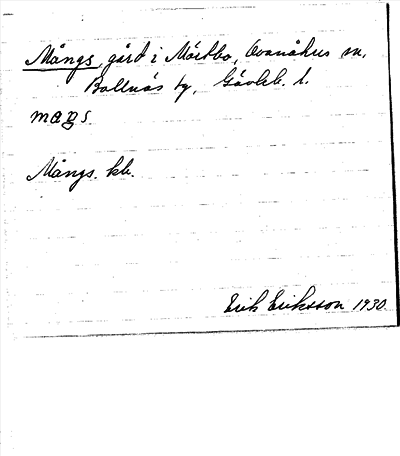 Mångs, gård i Mårdbo, Ovanåkers sn,
Bollnäs tg, Gävleb. l.
Mångs. kb.
Erik Eriksson 1930.